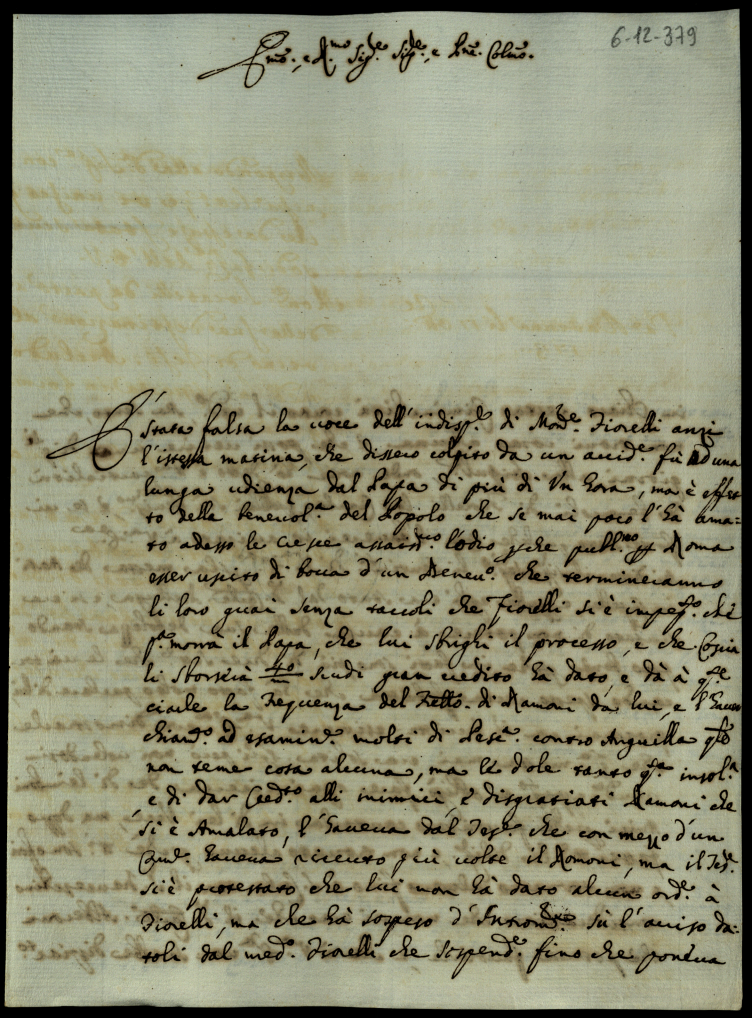 6-12-379
Emo. e Rmo Sigre Sigre, e Pne Colmo.
È stata falsa la voce dell'indispne di Monre Fiorelli anzi
l'istessa matina, che dissero colpito da un accide fù ad una
lunga udienza dal Papa di più di Un hora, ma è effet=
to della benevolza del Popolo che se mai poco l'hà ama=
to adesso le cresce l'odio perche publ.co per Roma
esser uscito di bocca d'un che termineranno
li loro guai senza taccoli che Fiorelli si è impeg.to che
p.a morrà il Papa, che lui sbrighi il processo, e che Coscia
li sborserà 40 scudi gran credito hà dato, e dà à q.ste
ciarle la frequenza del Fratto. di Ramoni da lui, e l'haver
chiam.to ad esamin.e molti di contro Anguilla q.sto
non teme cosa alcuna, ma li dole tanto q.sta insol.a
e di dar Cred.to alli inimici, e disgratiati Ramoni che
si è Amalato, l'haveva dal Tes.re che con mezzo d'un
haveva ricevuto più volte il Romoni, ma il Tes.re
si è protestato che lui non hà dato alcun ord.e à
Fiorelli, ma che hà sospeso d' sù l'aviso da=
toli dal med.o Fiorelli che sospend.e fino che poneva